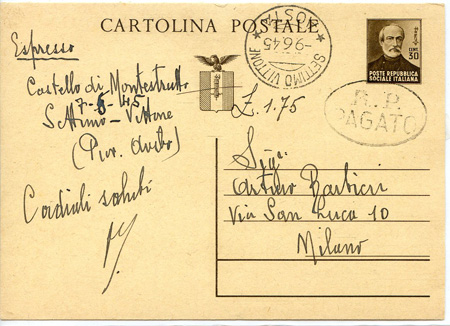 CARTOLINA POSTALE
Espresso
Castello di Montestrutto
7-6-45
Settimo-Vittone
(Prov. Aosta)
Cordiali saluti
POSTA
-9.6.45
SETTIMO VITTONE
£.1.75
CENT. 30
POSTE REPUBBLICA
SOCIALE ITALIANA
R.P.
PAGATO
Sig.
Arturo Barbieri
Via San Luca 10
Milano